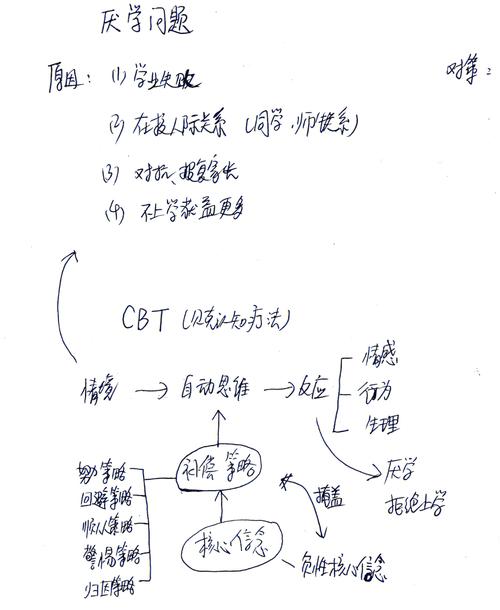 厌学问题
原因：(1) 学业失败
对策：
(2) 在校人际关系 (同学、师生关系)
(3) 对抗、报复家长
(4) 不上学获益更多
CBT (贝克认知方法)
情境 → 自动思维 → 反应
情感
行为
生理
厌学
拒绝上学
补偿策略
努力策略
回避策略
顺从策略
警惕策略
归因策略
掩盖
核心信念
负性核心信念